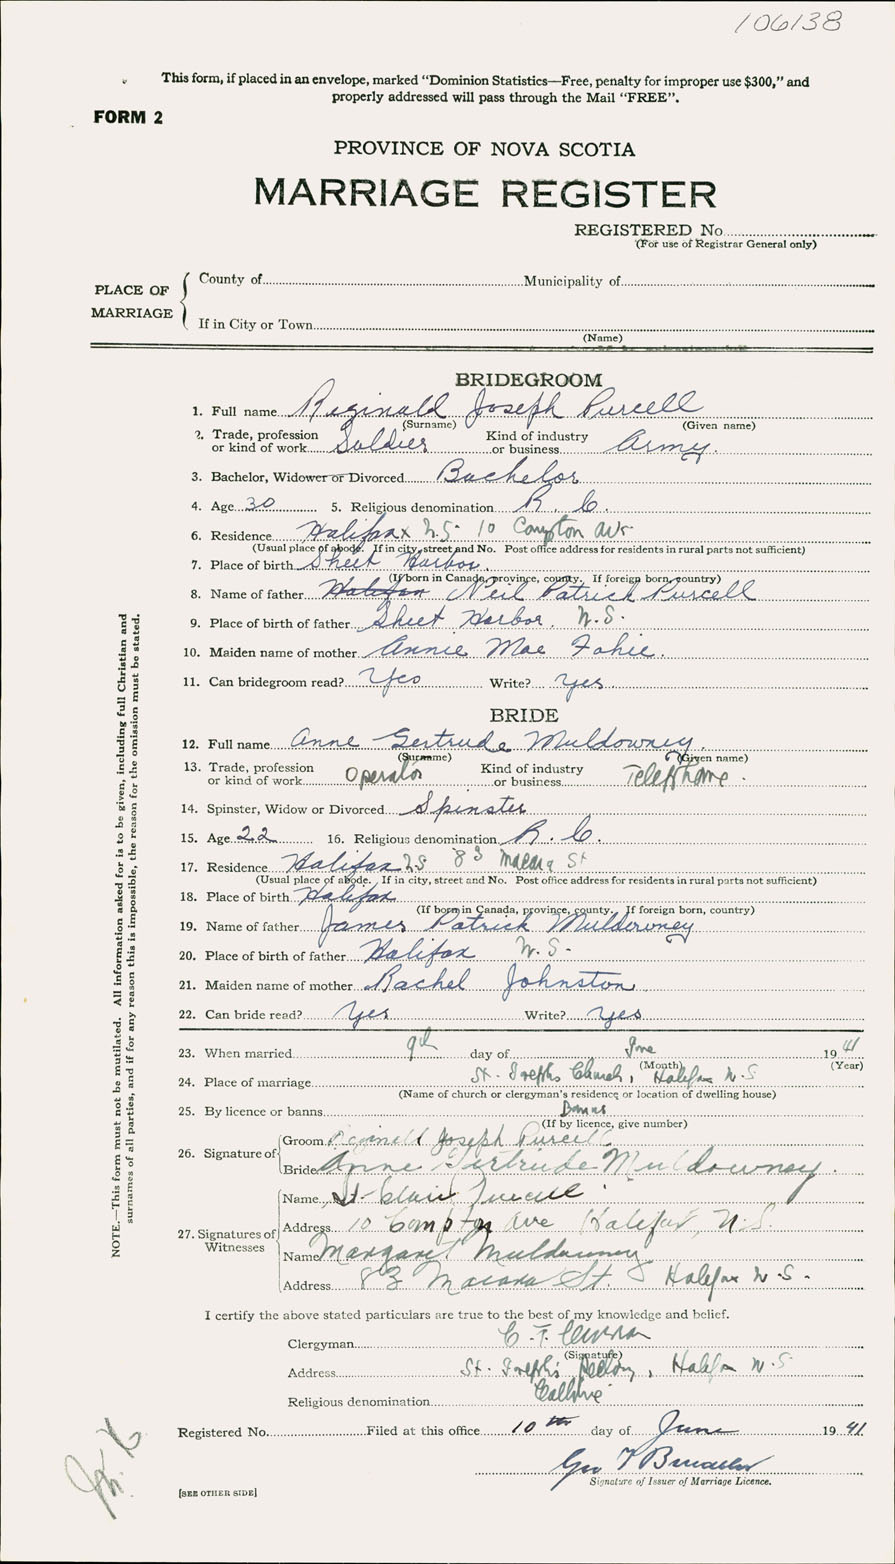 106138
This form, if placed in an envelope, marked "Dominion Statistics—Free, penalty for improper use $300," and
properly addressed will pass through the Mail "FREE".
FORM 2
PROVINCE OF NOVA SCOTIA
MARRIAGE REGISTER
REGISTERED No.
(For use of Registrar General only)
PLACE OF MARRIAGE
County of Municipality of
If in City or Town
(Name)
BRIDEGROOM
1. Full name Reginald Joseph Purcell
(Surname) (Given name)
2. Trade, profession or kind of work Soldier Kind of industry or business Army.
3. Bachelor, Widower or Divorced Bachelor
4. Age 30 5. Religious denomination R. C.
6. Residence Halifax N.S. 10 Compton Ave
(Usual place of abode. If in city, street and No. Post office address for residents in rural parts not sufficient)
7. Place of birth Sheet Harbor.
(If born in Canada, province, county. If foreign born, country)
8. Name of father Halifax Neil Patrick Purcell
9. Place of birth of father Sheet Harbor. N.S.
10. Maiden name of mother Annie Mae Fahie.
11. Can bridegroom read? Yes Write? Yes
BRIDE
12. Full name Anne Gertrude Muldowney.
(Surname) (Given name)
13. Trade, profession or kind of work Operator Kind of industry or business Telephone.
14. Spinster, Widow or Divorced Spinster
15. Age 22 16. Religious denomination R. C.
17. Residence Halifax NS 83 Macara St
(Usual place of abode. If in city, street and No. Post office address for residents in rural parts not sufficient)
18. Place of birth Halifax
(If born in Canada, province, county. If foreign born, country)
19. Name of father James Patrick Muldowney
20. Place of birth of father Halifax N.S.
21. Maiden name of mother Rachel Johnston
22. Can bride read? Yes Write? Yes
23. When married 9th day of June 1941
(Month) (Year)
24. Place of marriage St. Josephs Church, Halifax N.S
(Name of church or clergyman's residence or location of dwelling house)
25. By licence or banns Banns
(If by licence, give number)
26. Signature of
Groom Reginald Joseph Purcell
Bride Anne Gertrude Muldowney.
27. Signatures of Witnesses
Name St. Clair Purcell
Address 10 Compton Ave Halifax, N.S.
Name Margaret Muldowney
Address 83 Macara St. Halifax N.S.
I certify the above stated particulars are true to the best of my knowledge and belief.
Clergyman C. F.
(Signature)
Address St. Joseph's Rectory, Halifax N.S
Religious denomination Catholic
Registered No. Filed at this office 10th day of June 1941.
Geo
Signature of Issuer of Marriage Licence.
[SEE OTHER SIDE]
NOTE.—This form must not be mutilated. All information asked for is to be given, including full Christian and
surnames of all parties, and if for any reason this is impossible, the reason for the omission must be stated.